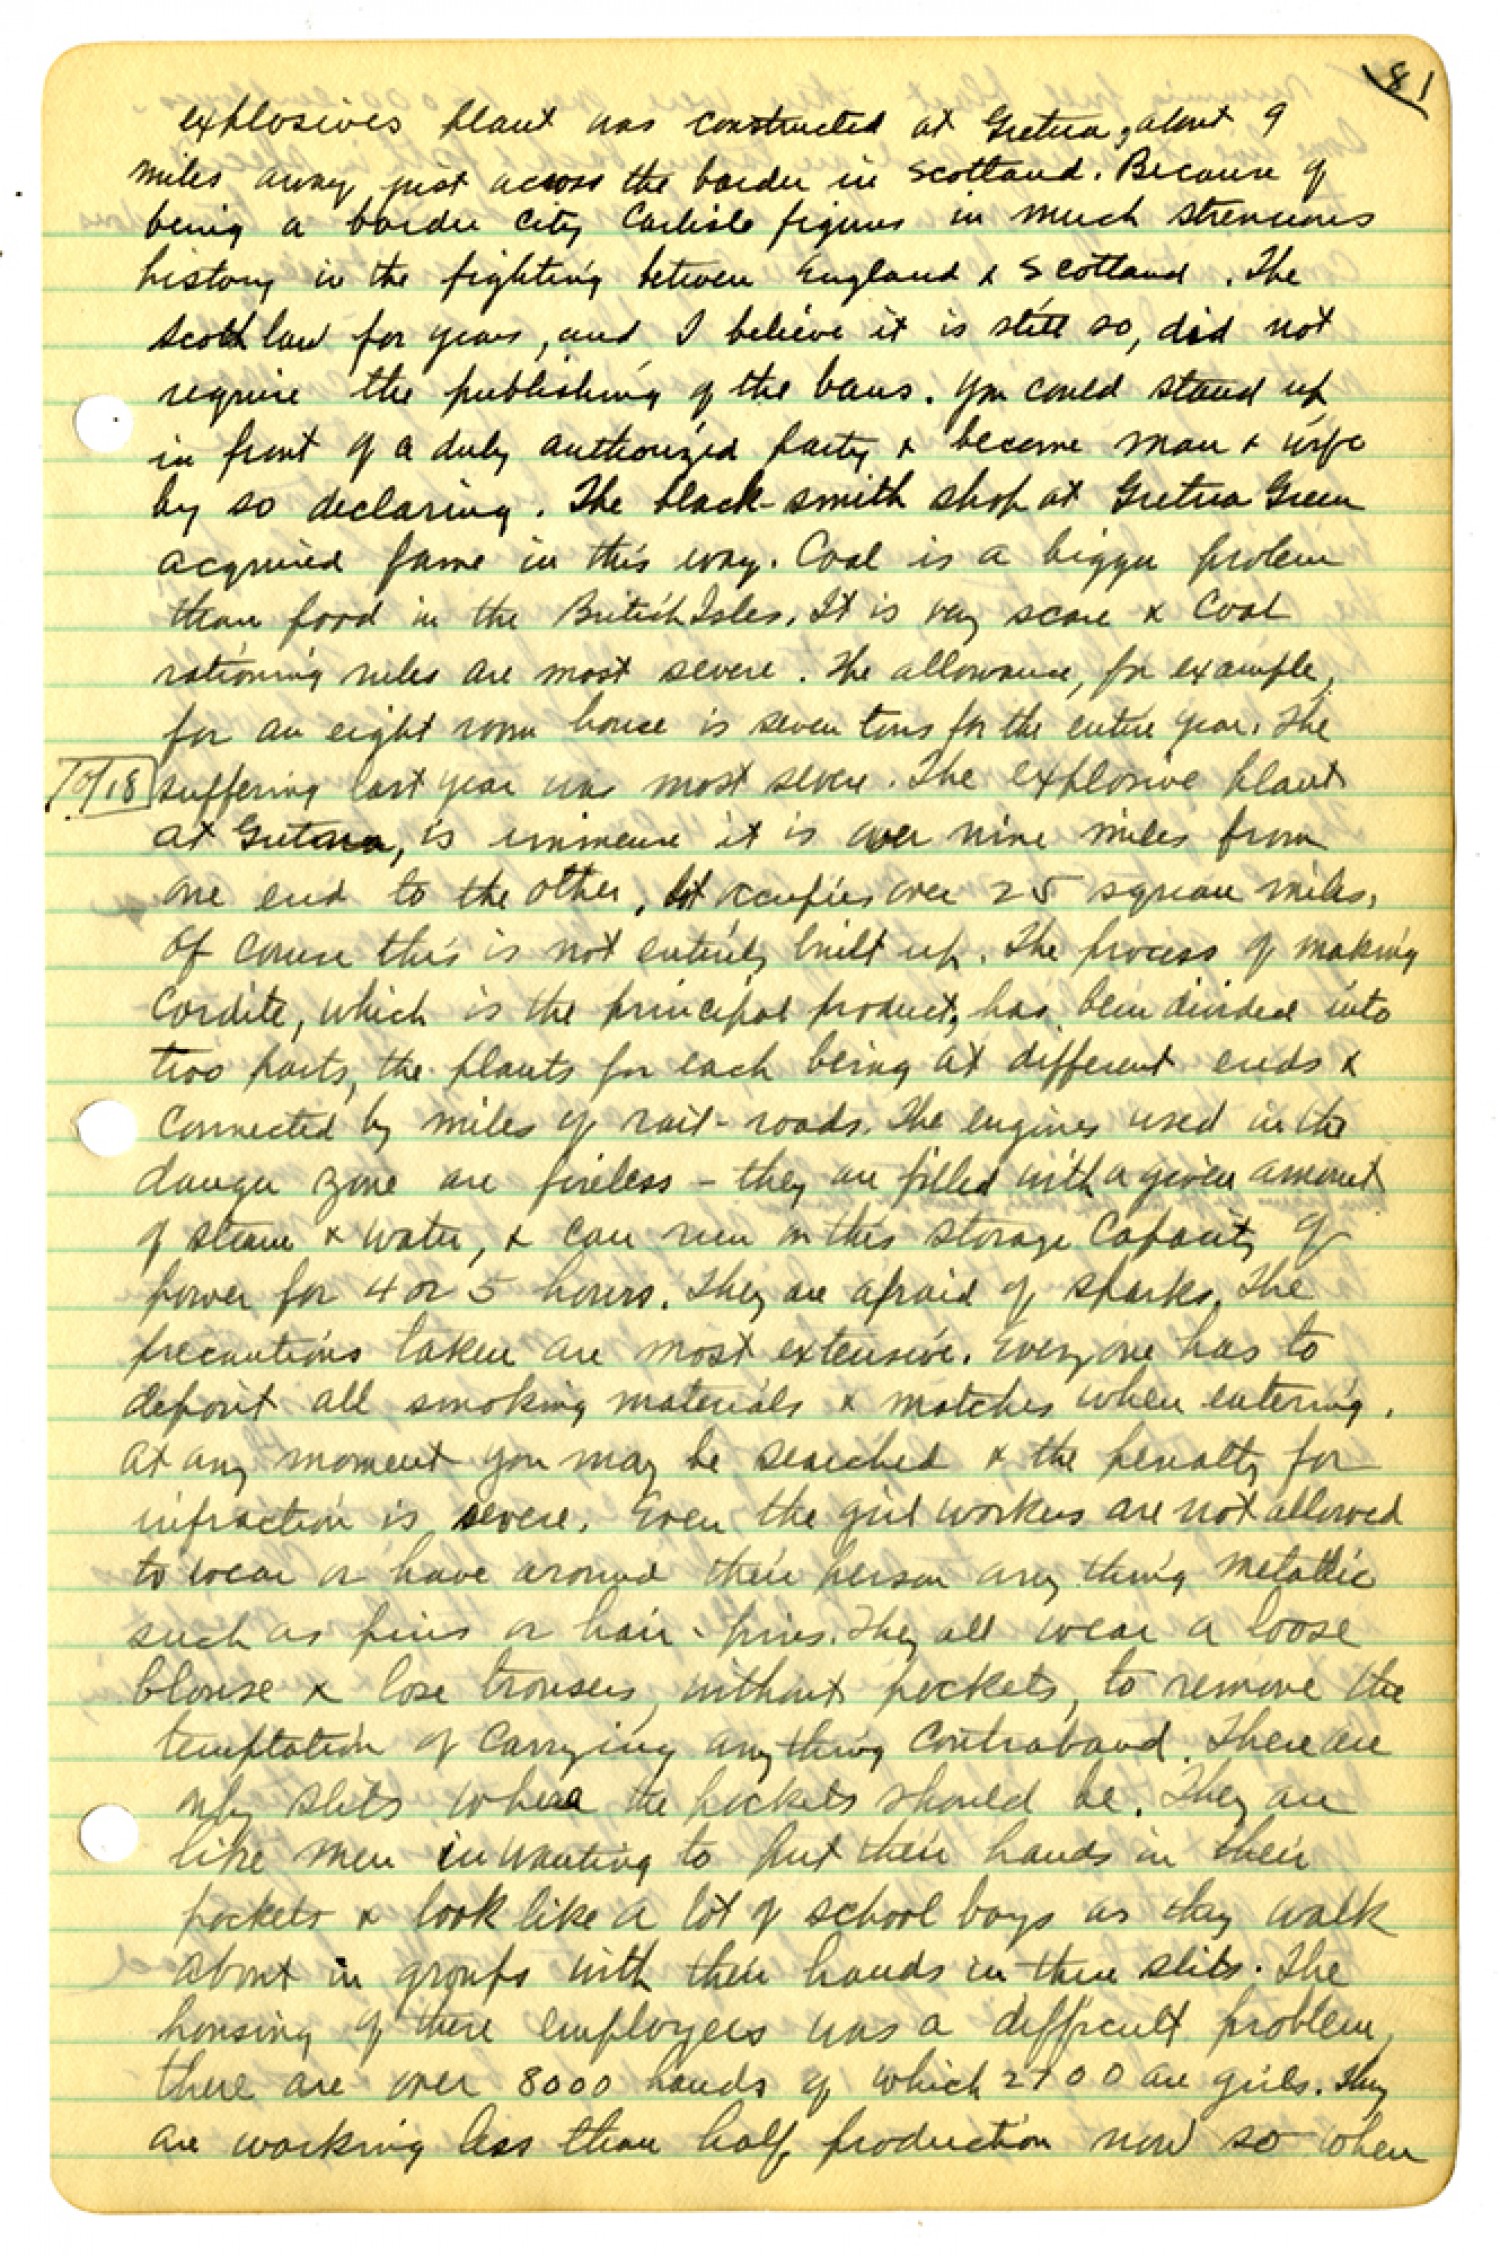 81
explosives plant was constructed at Gretna, about 9
miles away just across the border in Scotland. Because of
being a border city Carlisle figures in much strenuous
history in the fighting between England & Scotland. The
Scotch law for years, and I believe it is still so, did not
require the publishing of the bans. You could stand up
in front of a duly authorized party & become man & wife
by so declaring. The black-smith shop at Gretna Green
acquired fame in this way. Coal is a bigger problem
than food in the British Isles. It is very scarce & Coal
rationing rules are most severe. The allowance, for example,
for an eight room house is seven tons for the entire year. The
10/18 suffering last year was most severe. The explosive plant
at Gretna, is immense it is over nine miles from
one end to the other. It occupies over 25 square miles.
Of course this is not entirely built up. The process of making
Cordite, which is the principal product, has been divided into
two parts, the plants for each being at different ends &
connected by miles of rail-roads. The engines used in the
danger zone are fireless - they are filled with a given amount
of steam & water, & can run on this storage capacity of
power for 4 or 5 hours. They are afraid of sparks. The
precautions taken are most extensive. Everyone has to
deposit all smoking materials & matches when entering.
At any moment you may be searched & the penalty for
infraction is severe. Even the girl workers are not allowed
to wear or have around their person any thing metallic
such as pins or hair-pins. They all wear a loose
blouse & lose trousers, without pockets, to remove the
temptation of carrying any thing contraband. There are
only slits where the pockets should be. They are
like men in wanting to put their hands in their
pockets & look like a lot of school boys as they walk
about in groups with their hands in these slits. The
housing of these employees was a difficult problem,
there are over 8000 hands of which 2700 are girls. They
are working less than half production now so when